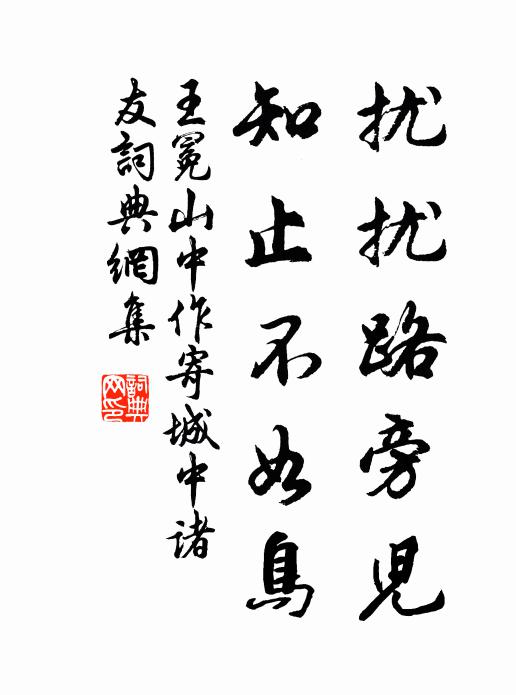 扰扰路旁兒
知止不如鳥
王冕山中作寄城中諸
友詞典網集
詞典
网印